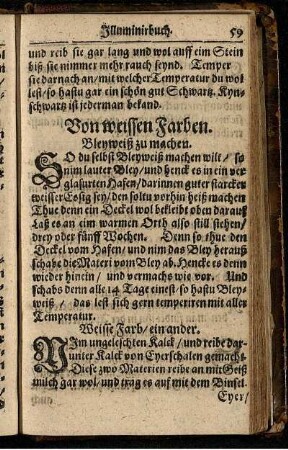 Illuminirbuch. 59
und reib sie gar lang und wol auff ein Stein
biß sie nimmer mehr rauch seynd. Temper
sie darnach an/ mit welcher Temperatur du wol
lest/ so hastu gar ein schön gut Schwartz. Kyn-
schwartz ist jederman bekand.
Von weissen Farben.
Bleyweiß zu machen.
SO du selbst Bleyweiß machen wilt/ so
nim lauter Bley/ und henck es in ein ver
glasurten Hafen/ darinnen guter starcker
weisser Essig sey/ den soltu vorhin heiß machen
Thue denn ein Deckel wol bekleibt oben darauff
Laß es an eim warmen Orth also still stehen/
drey oder fünff Wochen. Denn so thue den
Deckel vom Hafen/ und nim das Bley herauß
schabe die Materi vom Bley ab. Hencke es denn
wieder hinein/ und vermachs wie vor. Und
schabs denn alle 14 Tage einest/ so hastu Bley-
weiß/ das lest sich gern temperiren mit aller
Temperatur.
Weisse Farb/ ein ander.
NIm ungeleschten Kalck/ und reibe dar-
unter Kalck von Eyerschalen gemacht
Diese zwo Materien reibe an mit Geiß
milch gar wol/ und trag es auf mit dem Binsel
Eyer/